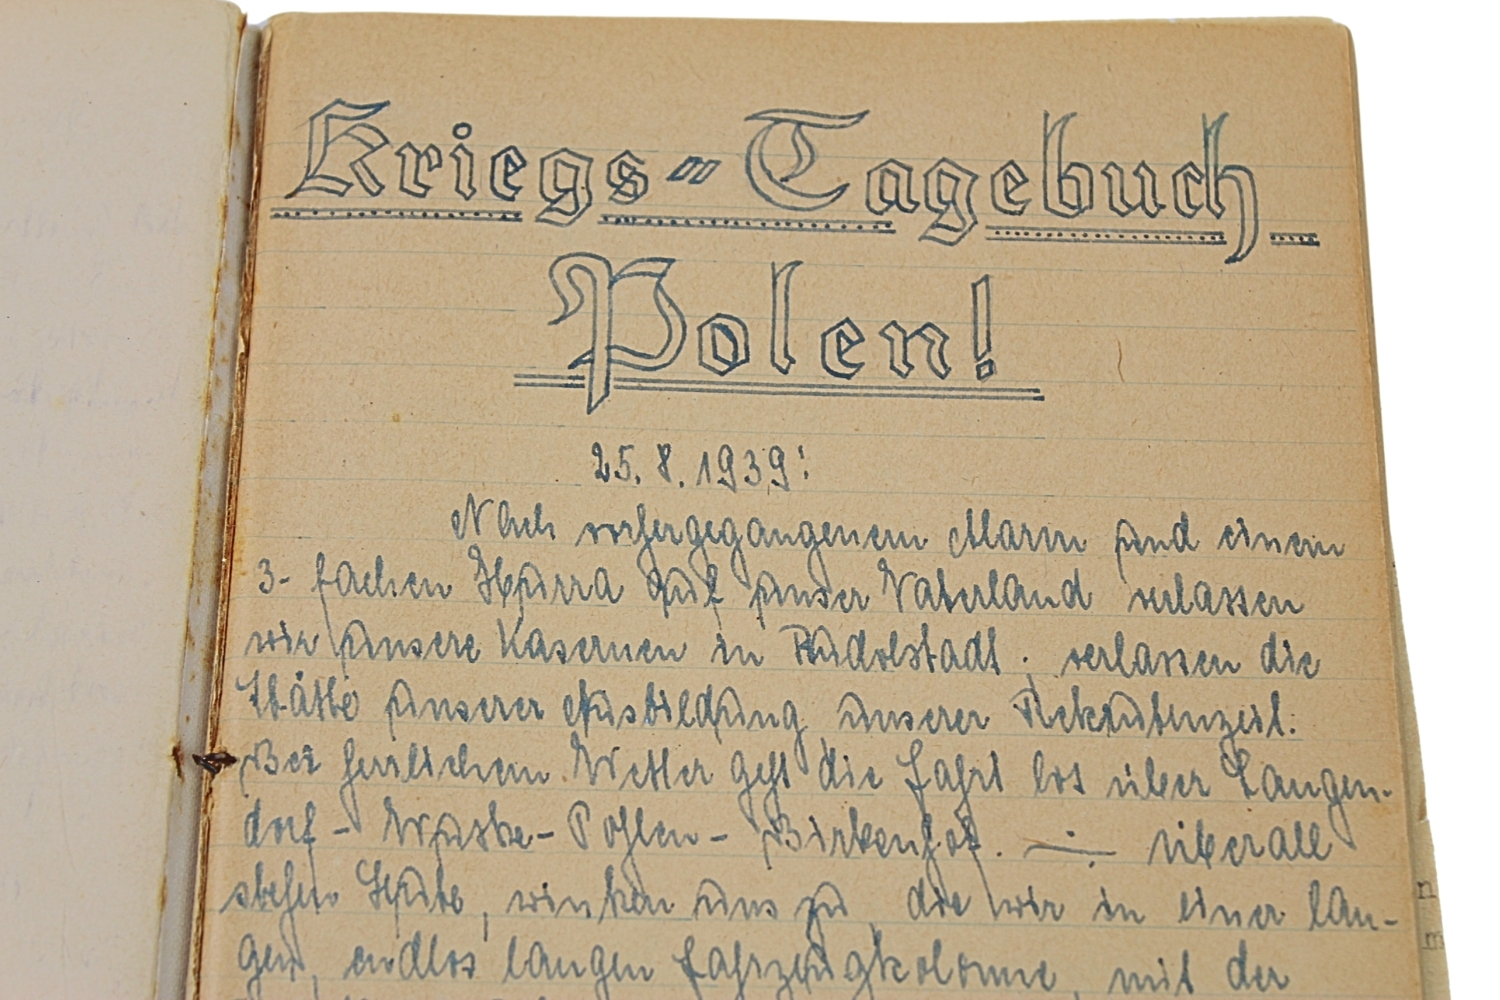 Kriegs-Tagebuch
Polen!
25.8.1939:
Nach vorhergegangenem Alarm und einem
3-fachen Hurra auf unser Vaterland verlassen
wir unsere Kasernen in Rudolstadt; verlassen die
Stätte unserer Ausbildung unserer Rekrutenzeit.
Bei herrlichem Wetter geht die Fahrt los über Langen-
dorf - - Pohlen - Birkenhof. — überall
stehen Leute, winken uns zu, die wir in einer lan-
gen, endlos langen Fahrzeugkolonne, mit der